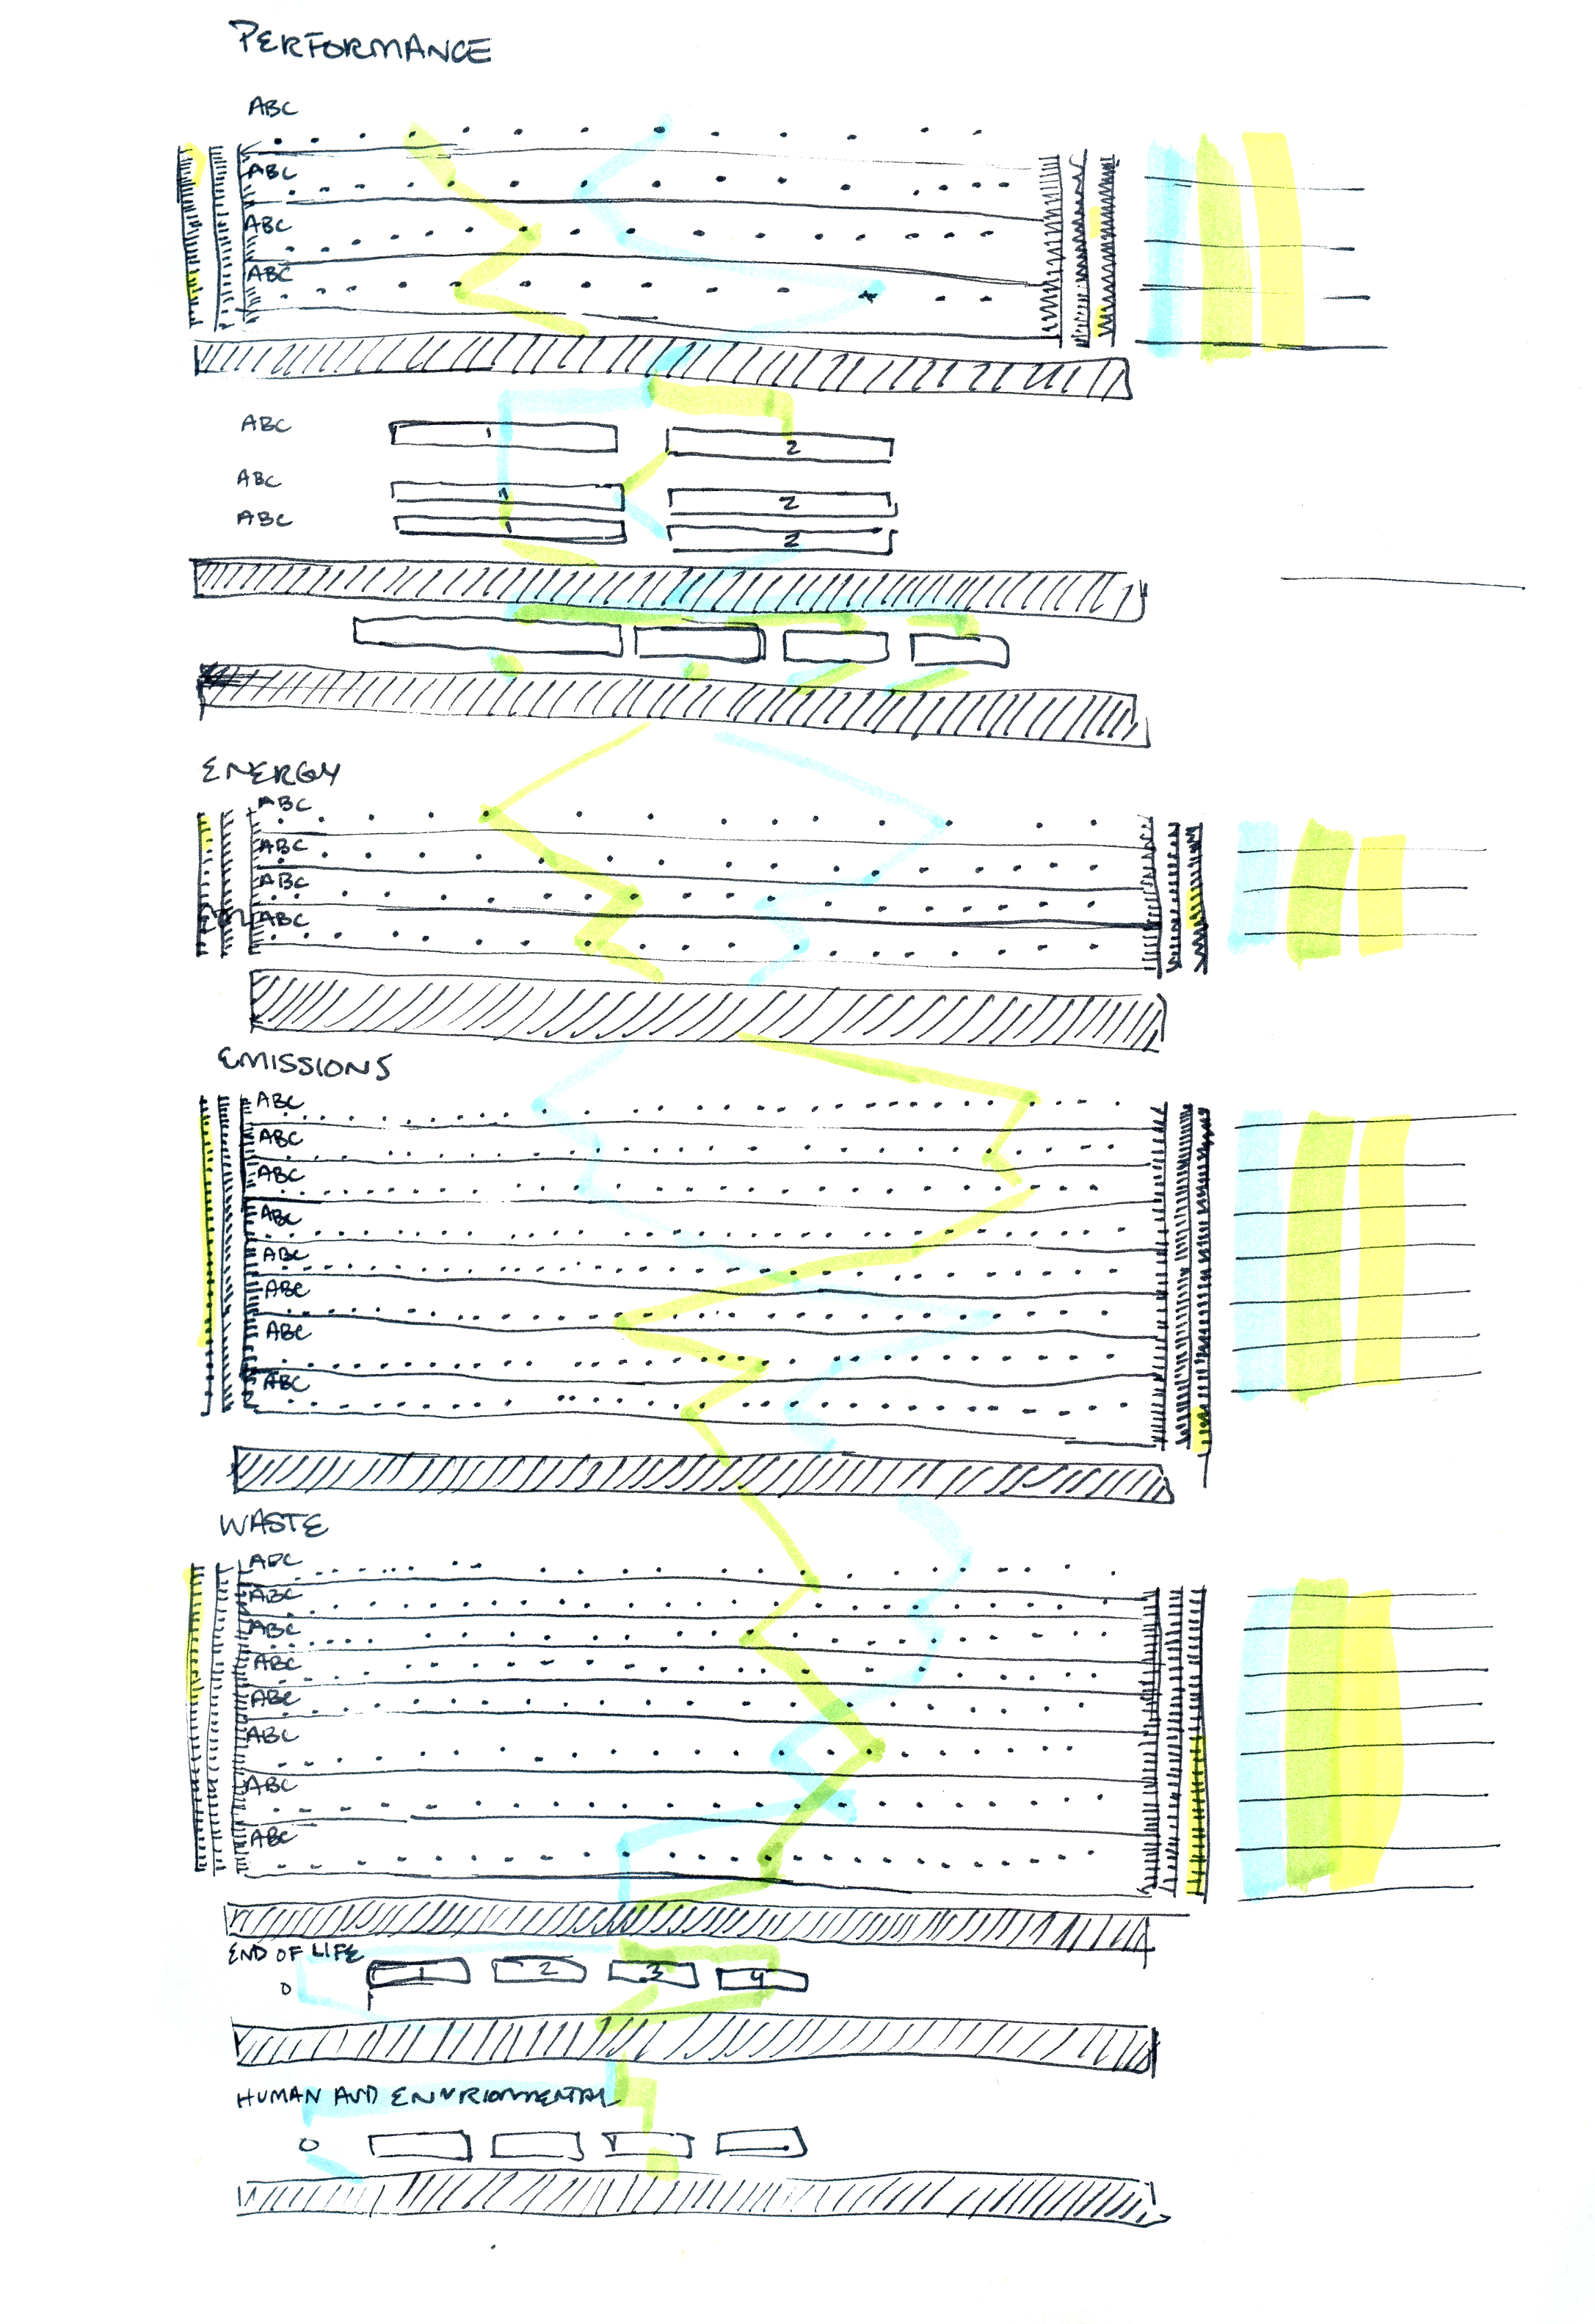 PERFORMANCE
ABC
ABC
ABC
ABC
ABC
1 2
ABC
1 2
ABC
1 2
ENERGY
ABC
ABC
ABC
ABC
EMISSIONS
ABC
ABC
ABC
ABC
ABC
ABC
ABC
ABC
WASTE
ABC
ABC
ABC
ABC
ABC
ABC
ABC
ABC
END OF LIFE
0 1 2 3 4
HUMAN AND ENVIRONMENTAL
0